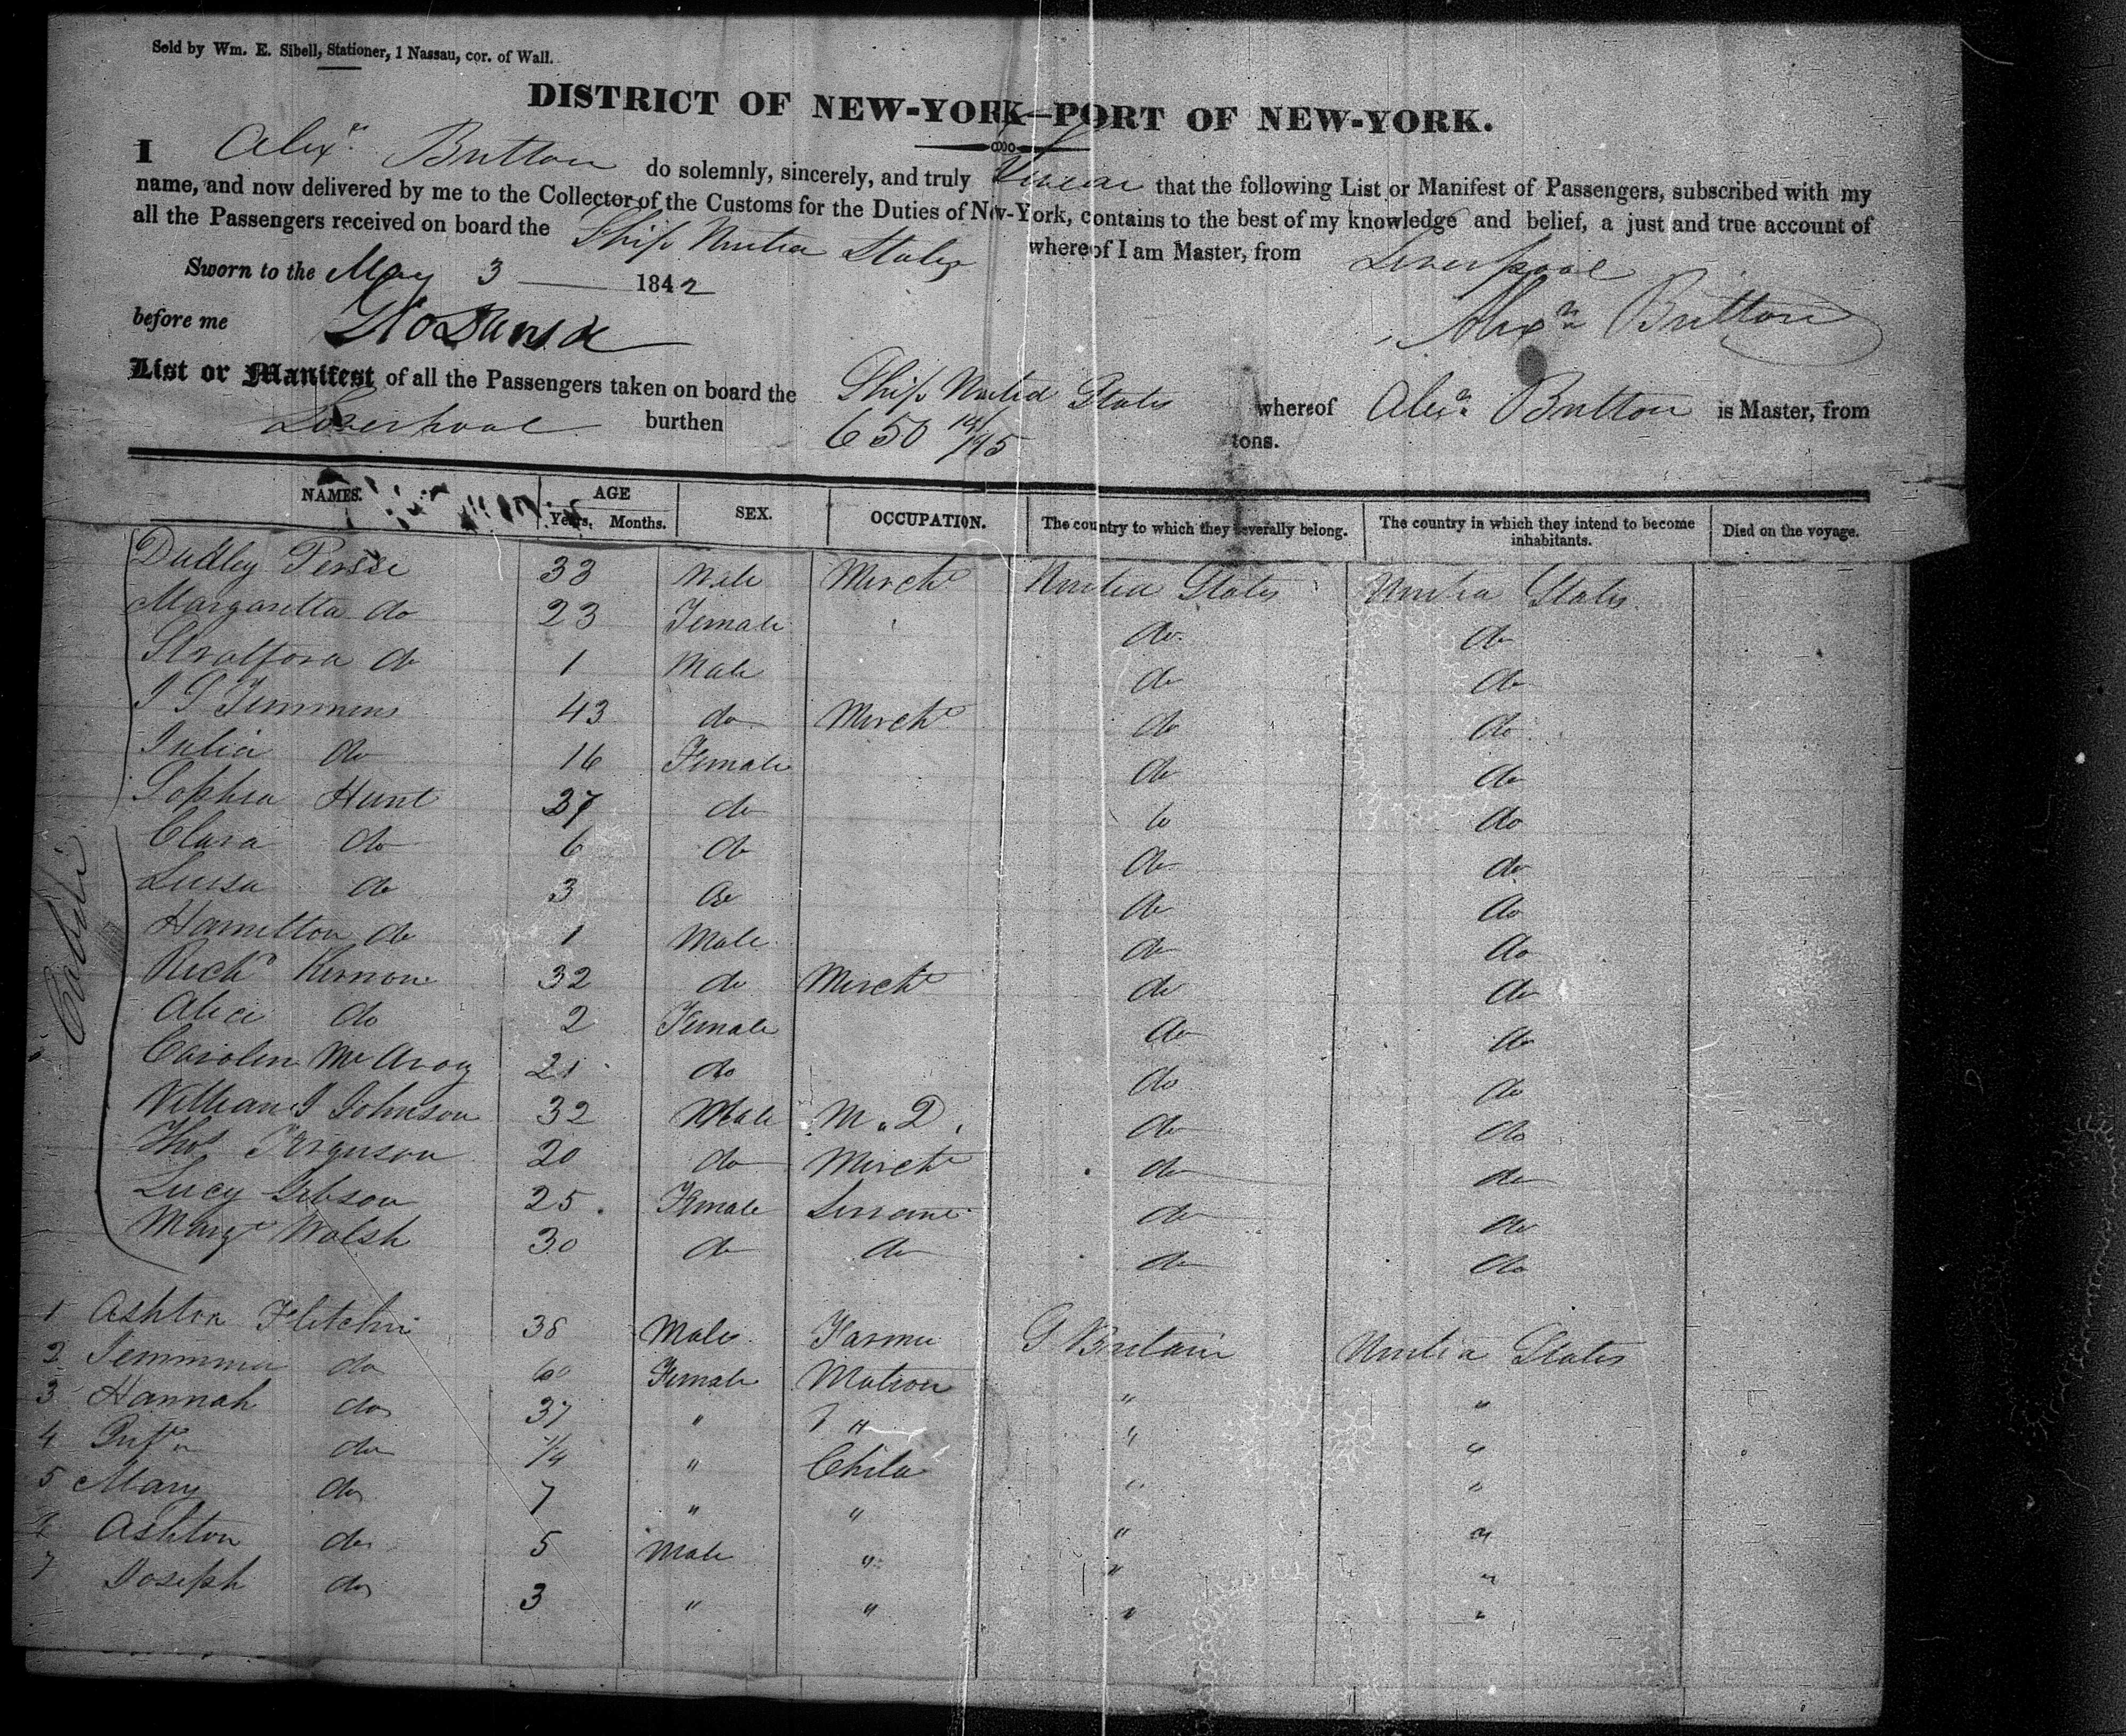 Sold by Wm. E. Sibell, Stationer, 1 Nassau, cor. of Wall.
DISTRICT OF NEW-YORK—PORT OF NEW-YORK.
I Alexr. Britton do solemnly, sincerely, and truly swear that the following List or Manifest of Passengers, subscribed with my
name, and now delivered by me to the Collector of the Customs for the Duties of New-York, contains to the best of my knowledge and belief, a just and true account of
all the Passengers received on board the Ship United States whereof I am Master, from Liverpool
Sworn to the May 3 1842
before me Alexr Britton
List or Manifest of all the Passengers taken on board the Ship United States whereof Alexr. Britton is Master, from
Liverpool burthen 650 /95 tons.
NAMES. AGE SEX. OCCUPATION. The country to which they severally belong. The country in which they intend to become inhabitants. Died on the voyage.
Years. Months.
Dudley Persse 33 Male Mercht United States United States
Margaretta do 23 Female do do
Stratford do 1 Male do do
J P Timmins 43 do Mercht do do
Julia do 16 Female do do
Sophia Hunt 37 do do do
Clara do 6 do do do
Luisa do 3 do do do
Hamilton do 1 Male do do
Richd Kernon 32 do Mercht do do
Alice do 2 Female do do
Carolin McAvoy 21 do do do
William J Johnson 32 Male M.D. do do
Thos Ferguson 20 do Mercht do do
Lucy Gibson 25 Female do do
Margt Walsh 30 do do do do
Cabin
1 Ashton Fletcher 38 Male Farmer G Britain United States
2 Jemmima do 60 Female Matron " "
3 Hannah do 37 " " " "
4 Inft do 1/4 " Child " "
5 Mary do 7 " " " "
6 Ashton do 5 Male " " "
7 Joseph do 3 " " " "